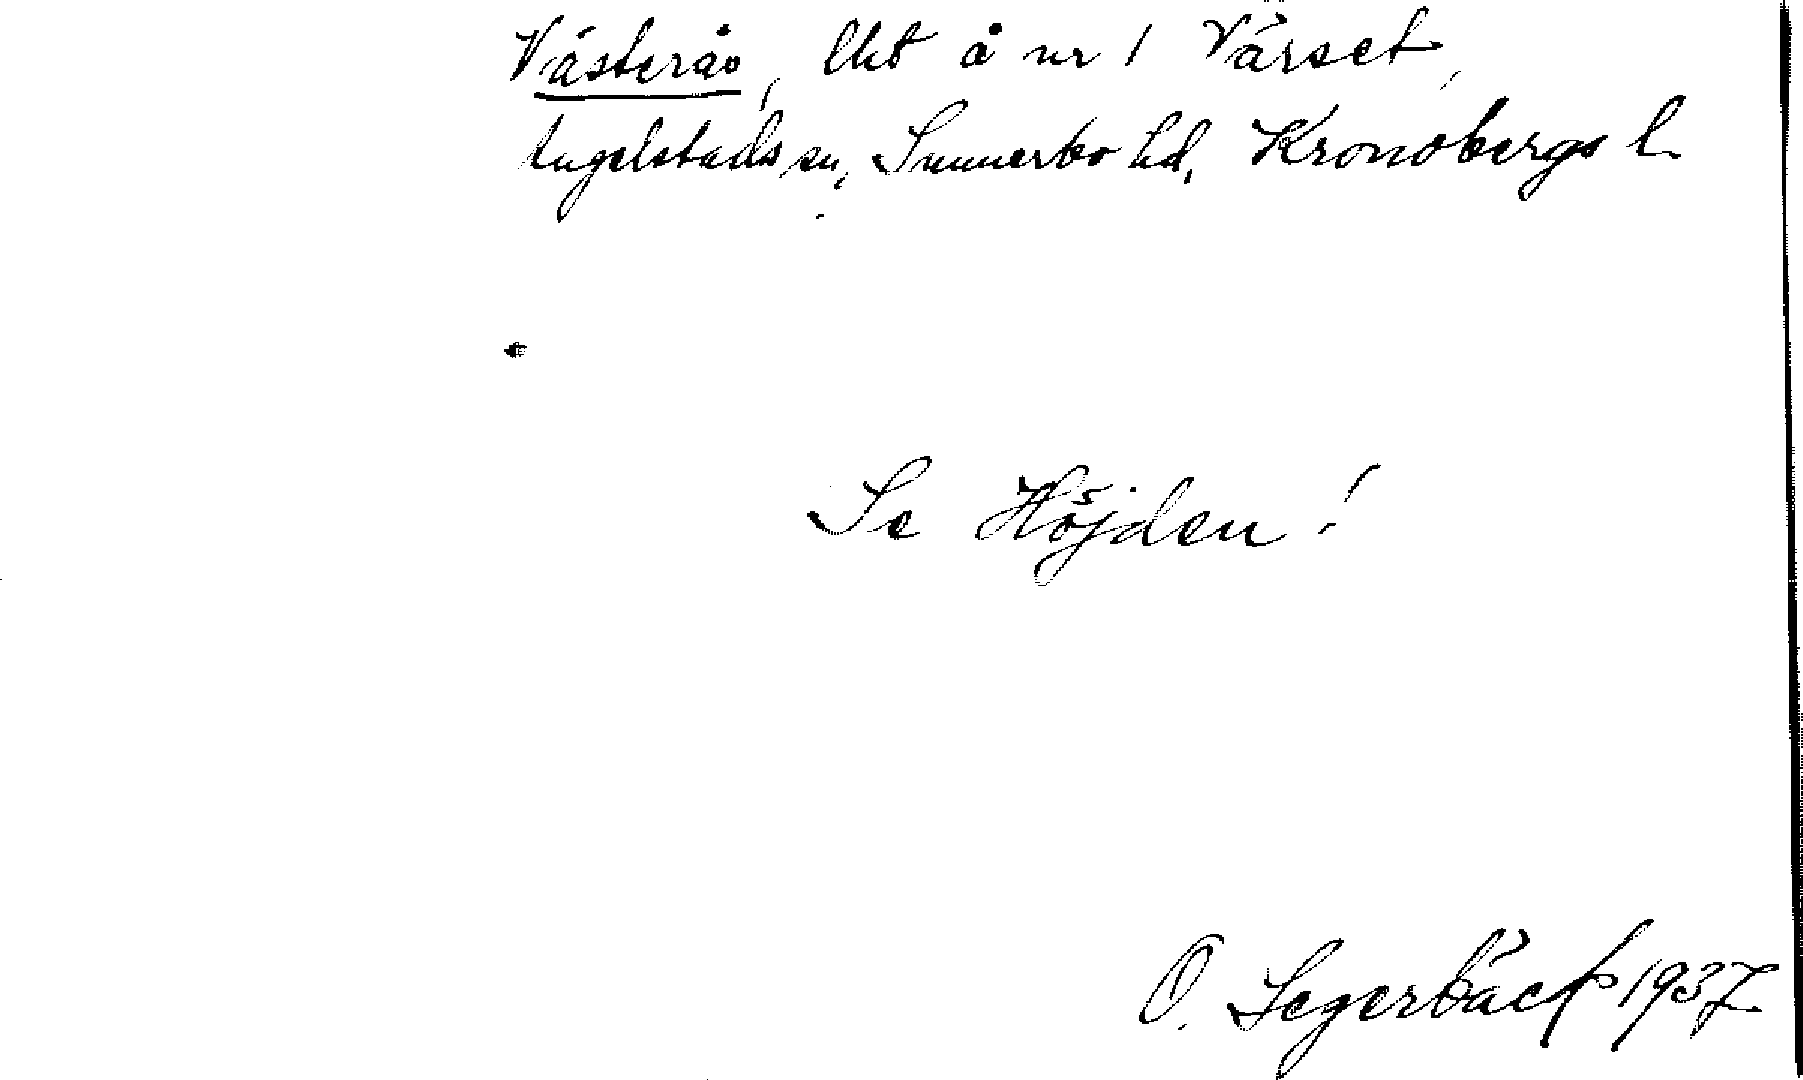 Västerås, lht å nr 1 Värset,
Angelstads sn, Sunnerbo hd, Kronobergs l.
Se Höjden!
O. Segerbäck 1937